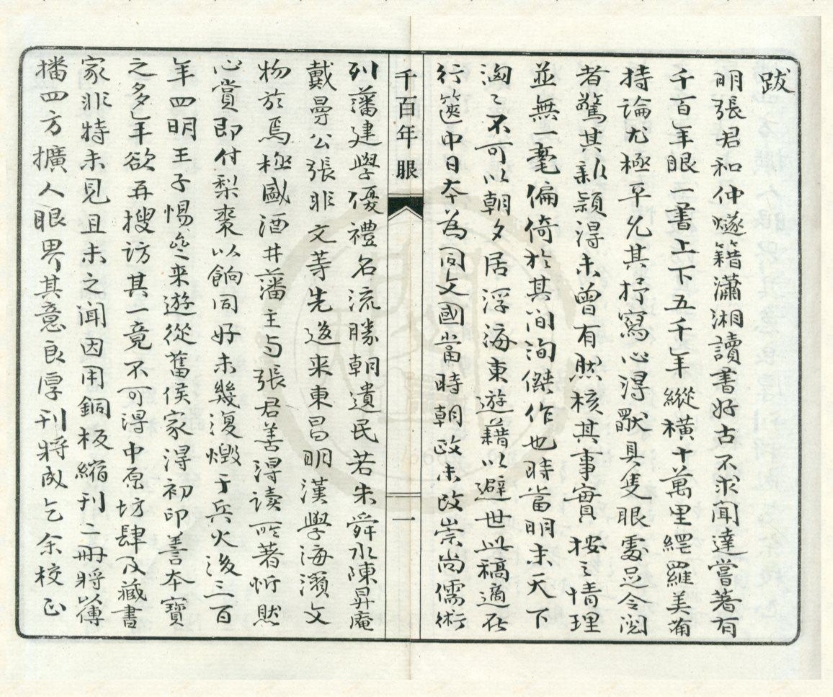 跋
明張君和仲燧籍瀟湘讀書好古不求聞達嘗著有
千百年眼一書上下五千年縱橫十萬里網羅美富
持論尤極平允其抒寫心得獸具隻眼處足令閱
者驚其新穎得未曾有然核其事實按之情理
並無一毫偏倚於其间洵傑作也時當明末天下
洶〻不可以朝夕居浮海東遊藉以避世此稿適在
行篋中日本為同文國當時朝政未改崇尚儒術
千百年眼
一
列藩建學優禮名流勝朝遺民若朱舜水陳昇庵
戴曼公張非文等先後來東昌明漢學海濱文
物於焉極盛酒井藩主与張君善得讀所著忻然
心賞即付梨棗以餉同好未幾復燬于兵火後三百
年四明王子惕斋來遊從舊侯家得初印善本寶
之多年欲再搜访其一竟不可得中原坊肆及藏書
家非特未見且未之闻因用銅板縮刊二冊將以傳
播四方擴人眼界其意良厚刊將成乞余校正